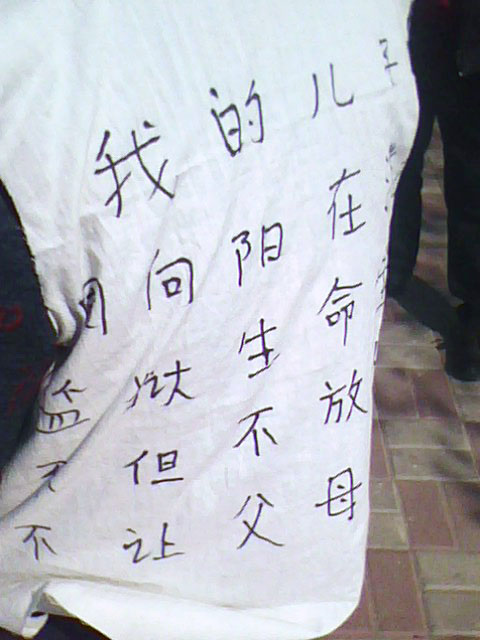 我的儿子
向阳在
监狱生命
不但不放
不让父母